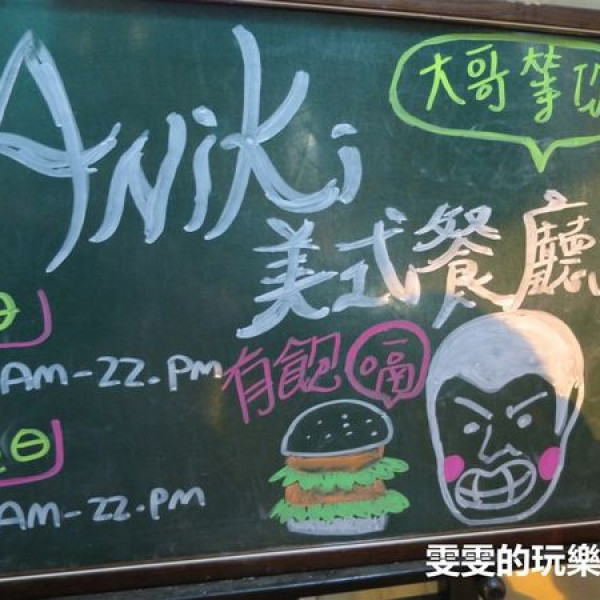 ANiKi
大哥等你
美式餐廳
AM-22.PM
有飽嗝
日
AM-22.PM
雯雯的玩樂